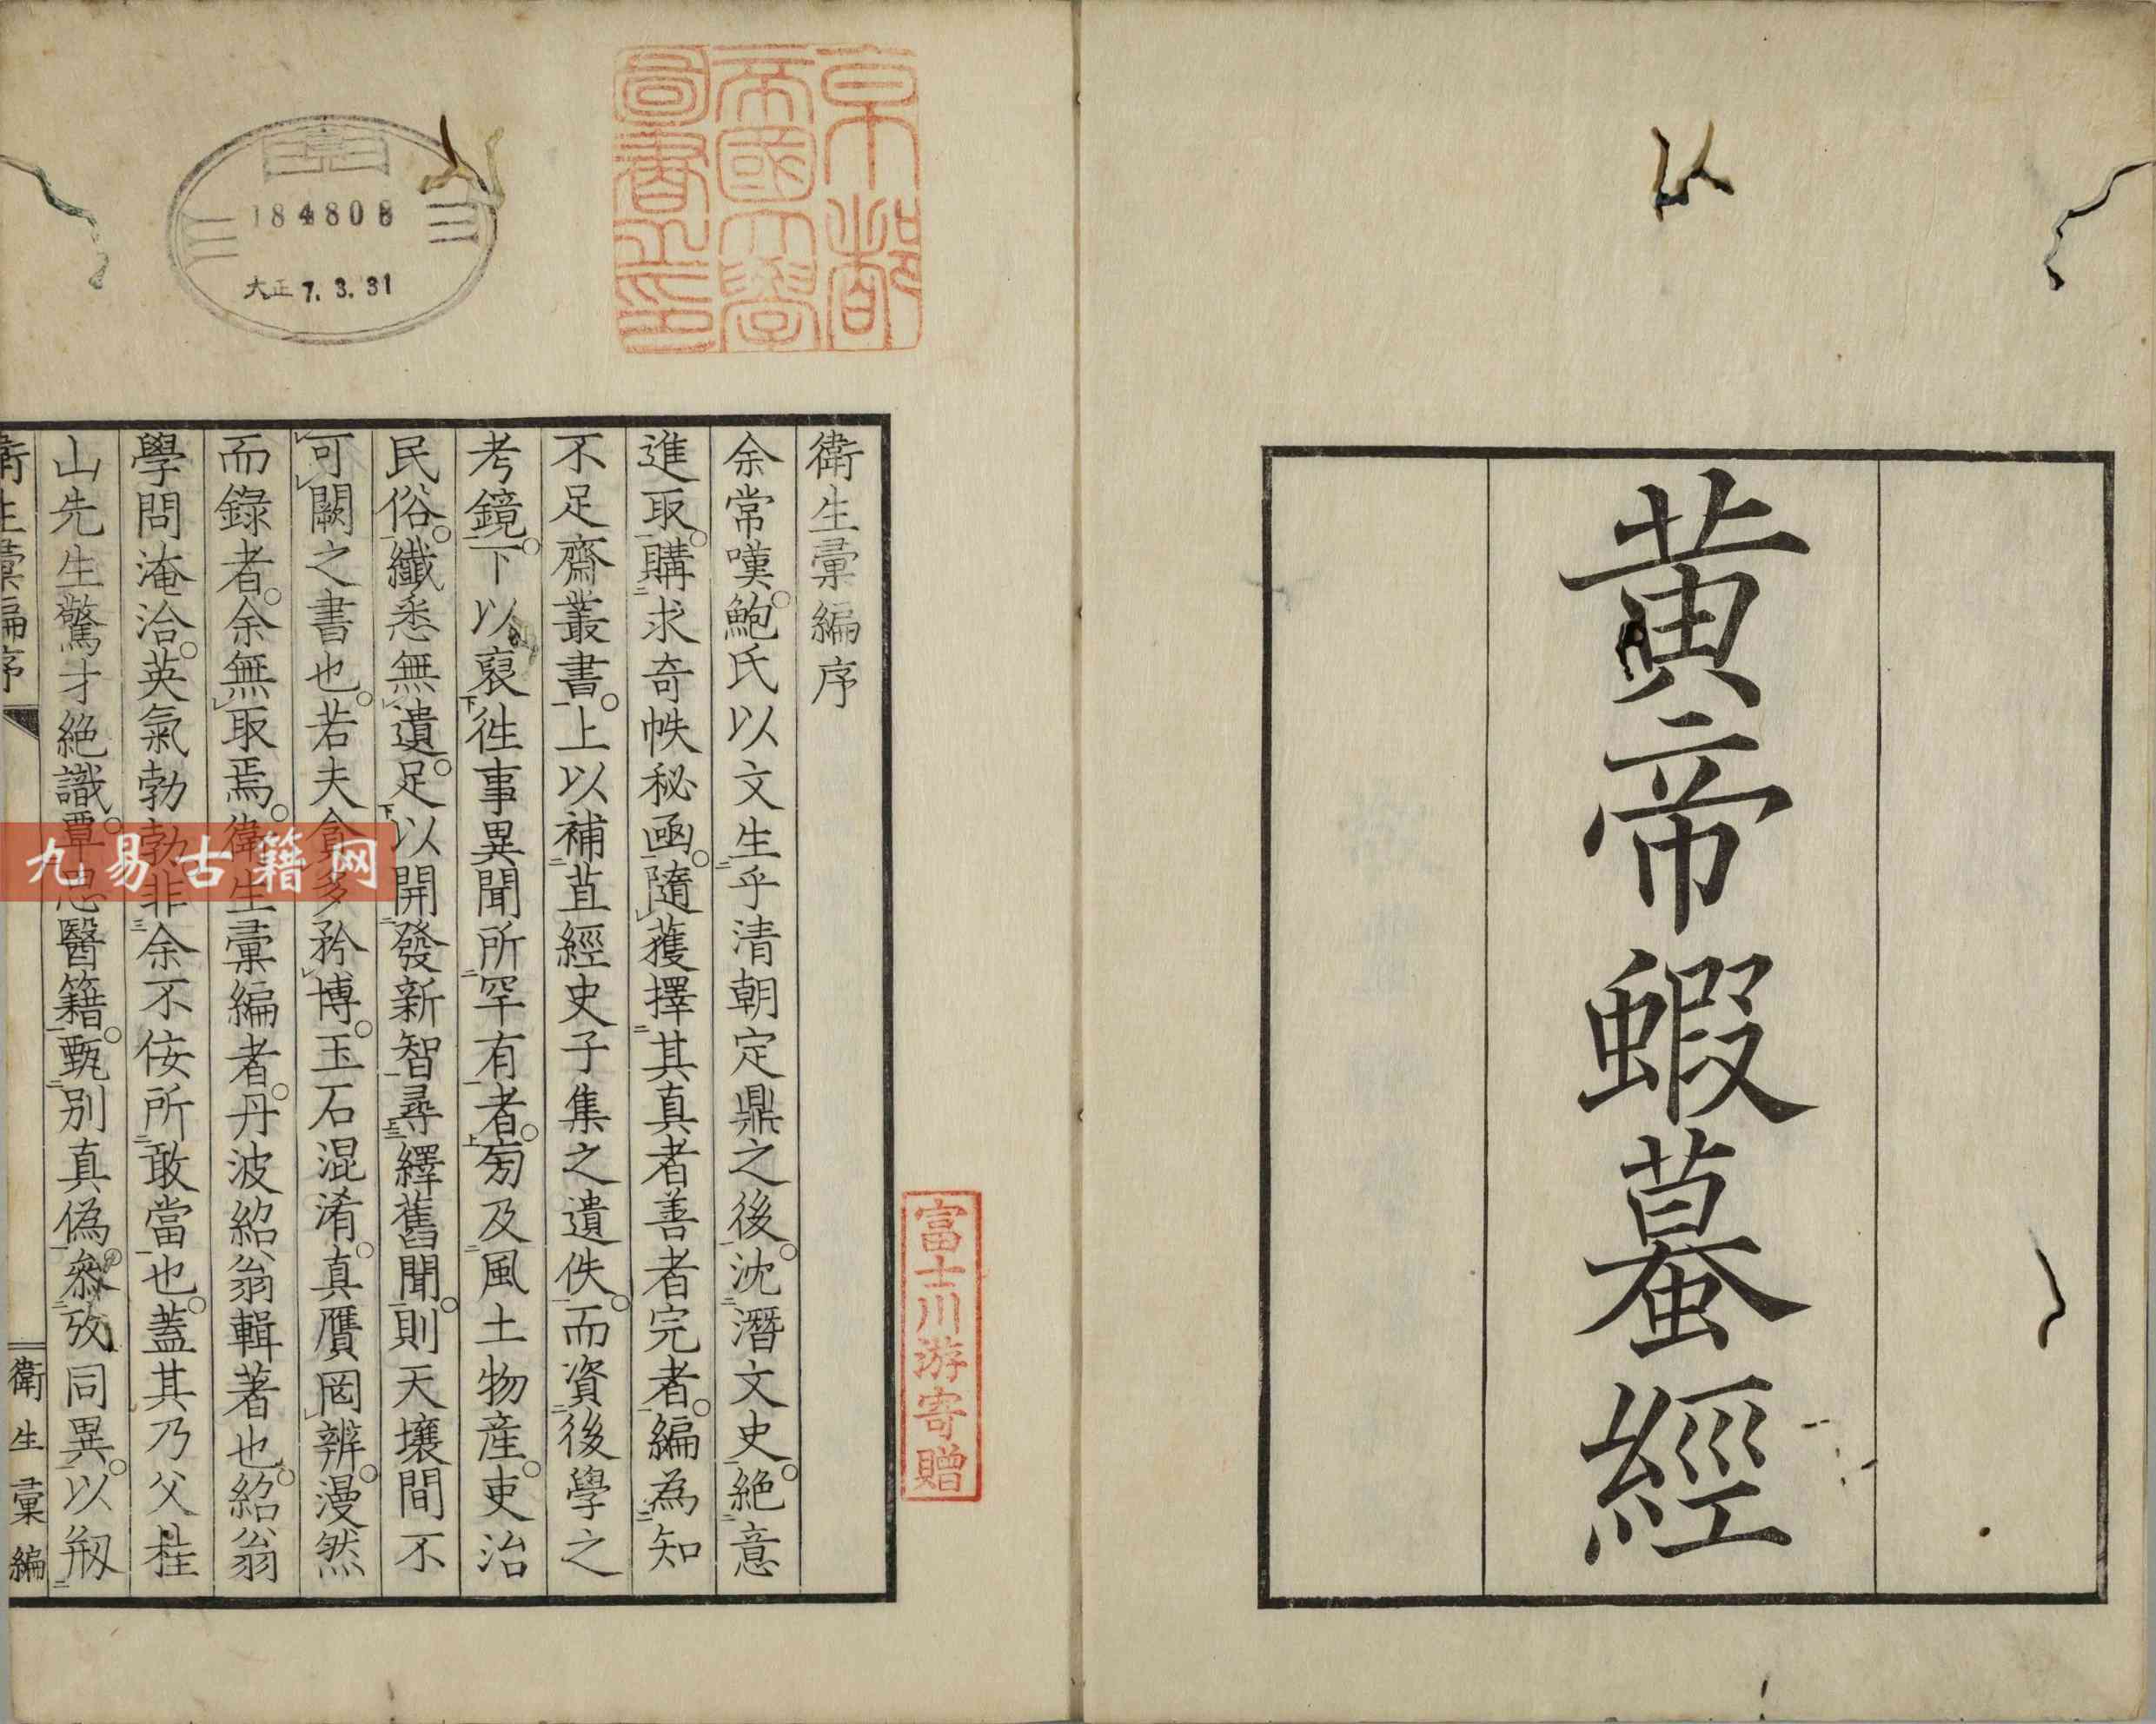 黄帝蝦蟇經
京都
帝國大學
圖書之印
富士川游寄贈
184808
大正 7. 3. 31
衛生彙編序
余常嘆。鮑氏以文生乎清朝定鼎之後。沈潛文史。絶意
進取。購求奇帙秘函。隨獲擇其真者善者完者。編為知
不足齋叢書。上以補苴經史子集之遺佚。而資後學之
考鏡。下以裒徃事異聞所罕有者。旁及風土物產。吏治
民俗。纖悉無遺。足以開發新智尋繹舊聞。則天壤間不
可闕之書也。若夫貪多矜博。玉石混淆。真贗罔辨。漫然
而錄者。余無取焉。衛生彙編者。丹波紹翁輯著也。紹翁
學問淹洽。英氣勃勃非余不佞所敢當也。蓋其乃父桂
山先生驚才絶識。覃思醫籍。甄別真偽。叅攷同異。以剏
衛生彙編序
衛生彙編
九易古籍网